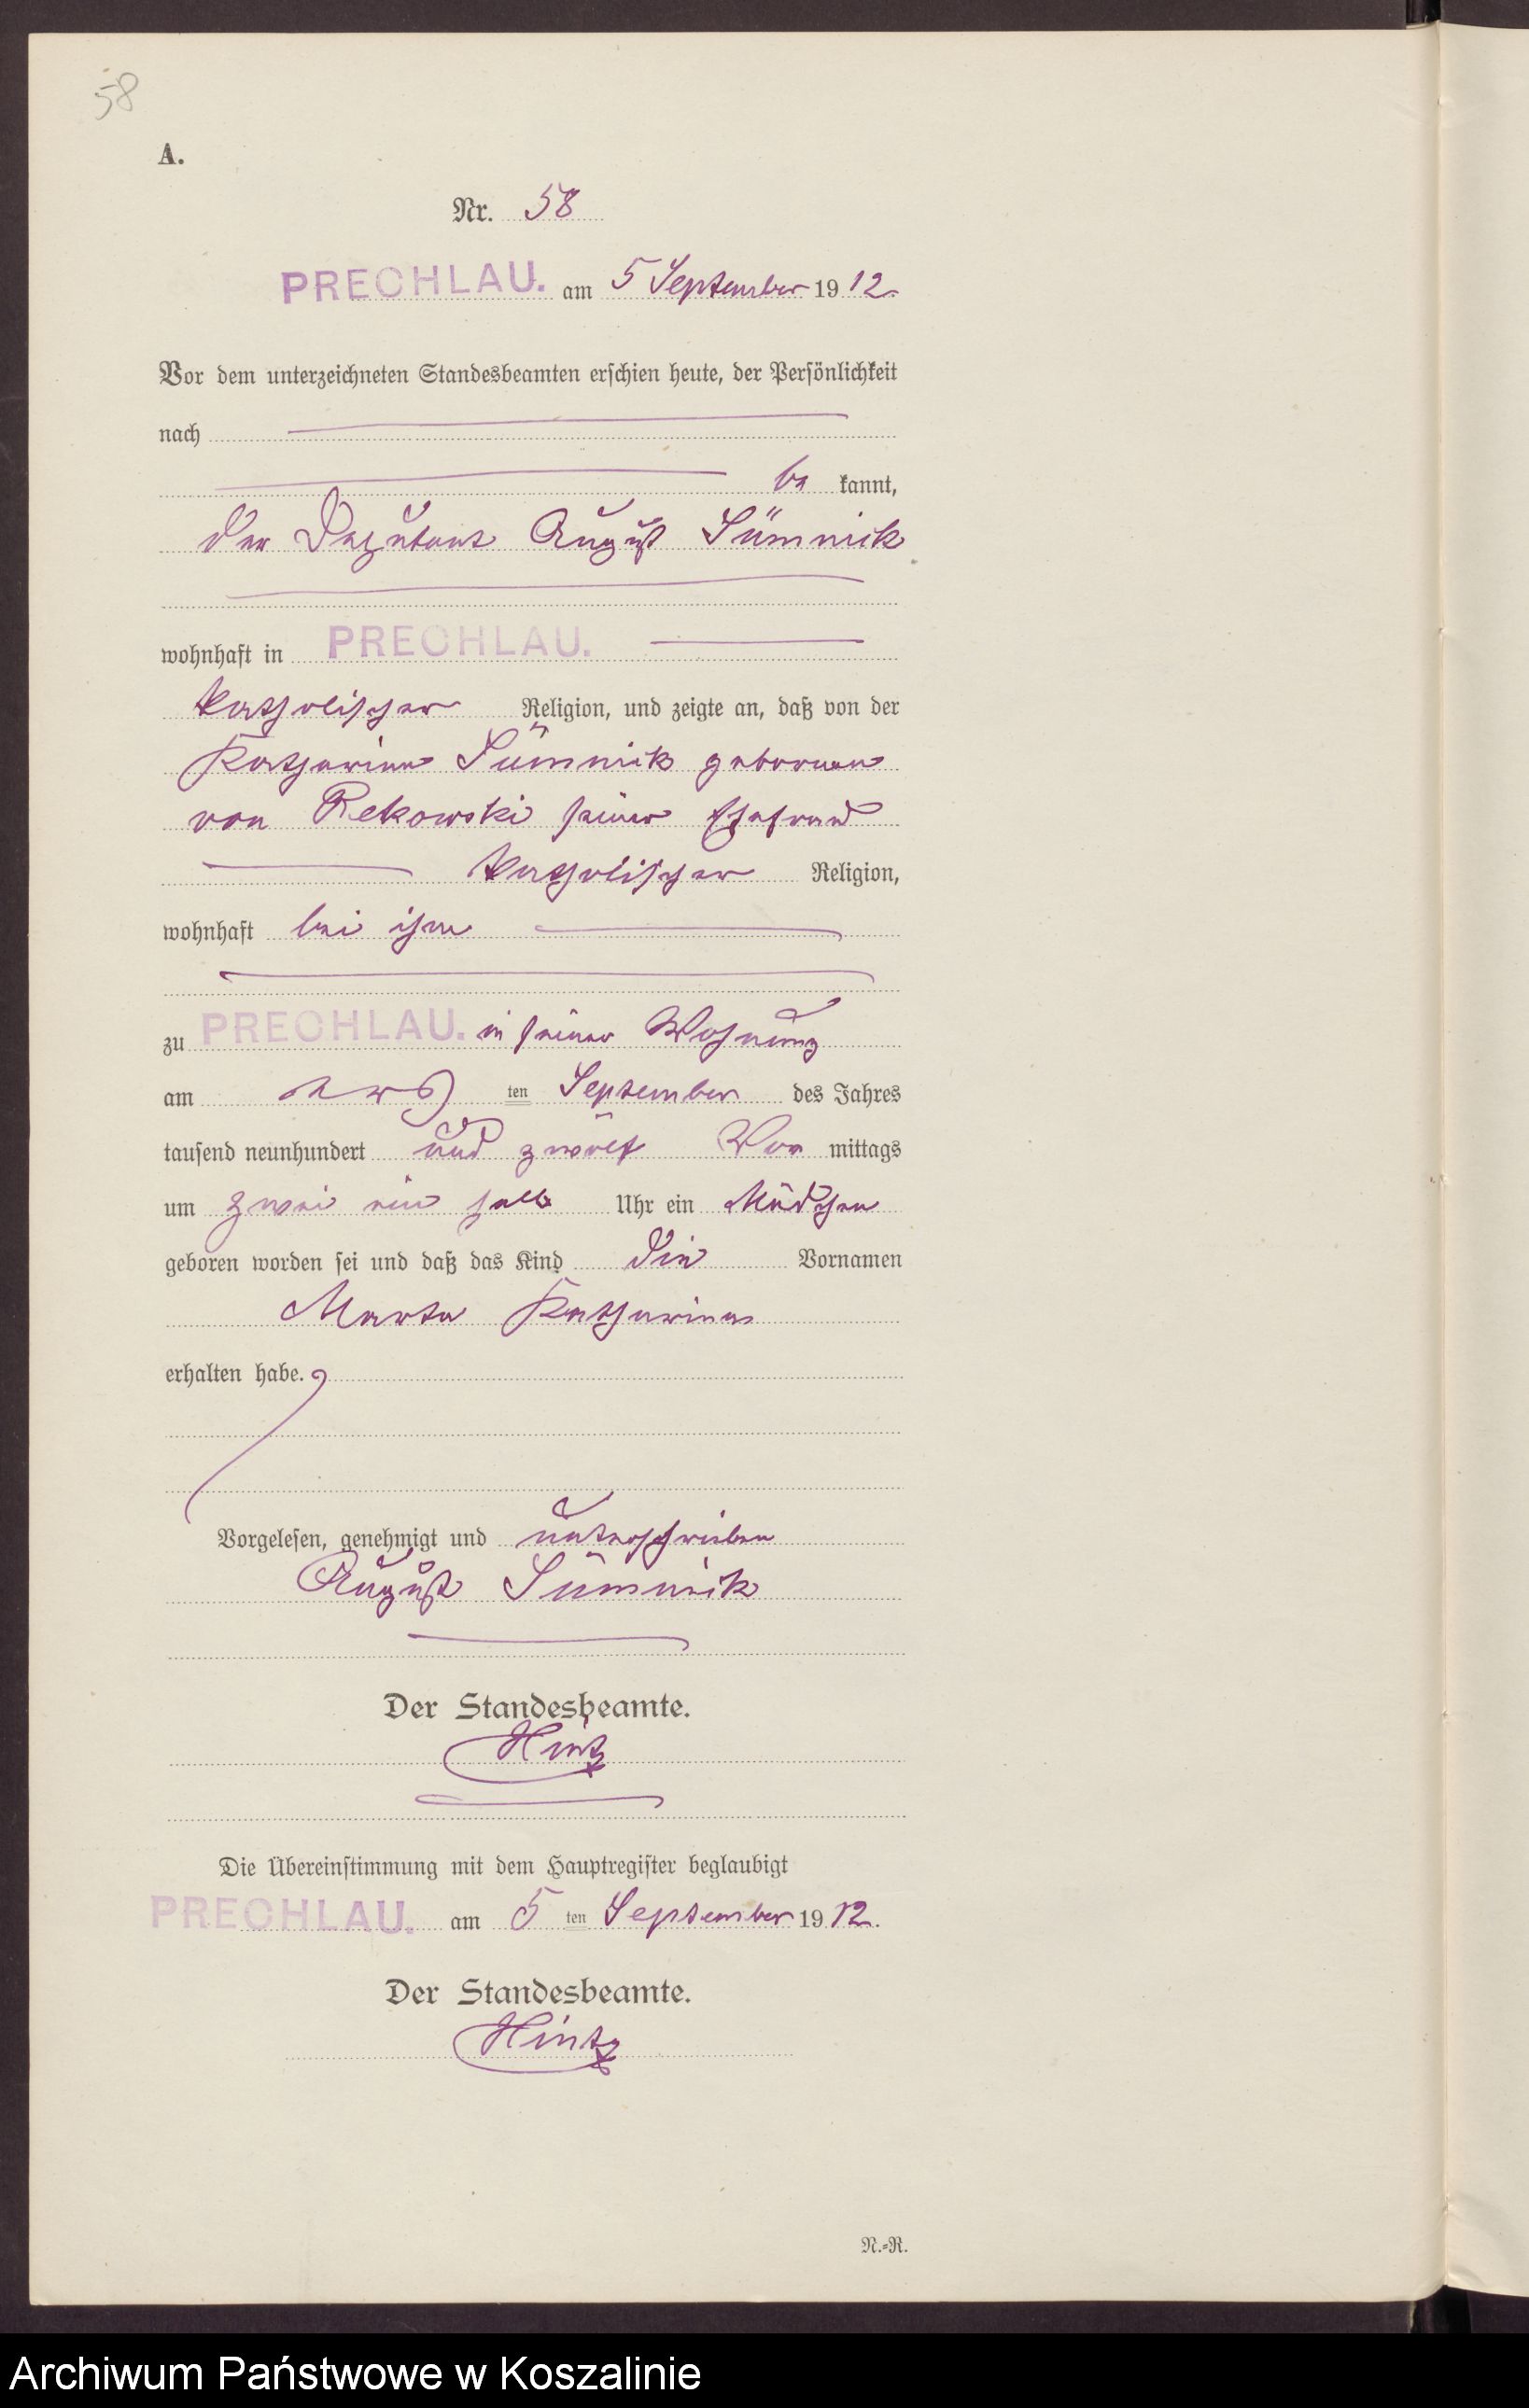 58
A.
Nr. 58
PRECHLAU. am 5 September 1912.
Vor dem unterzeichneten Standesbeamten erschien heute, der Persönlichkeit
nach
be kannt,
der Deputant August Sümnick
wohnhaft in PRECHLAU.
katholischer Religion, und zeigte an, daß von der
Katharina Sümnick geborenen
von Rekowski seiner Ehefrau
katholischer Religion,
wohnhaft bei ihm
zu PRECHLAU. in seiner Wohnung
am ten September des Jahres
tausend neunhundert und zwölf Vor mittags
um zwei ein halb Uhr ein Mädchen
geboren worden sei und daß das Kind die Vornamen
Marta Katharina
erhalten habe.
Vorgelesen, genehmigt und unterschrieben
August Sümnick
Der Standesbeamte.
Hintz
Die Übereinstimmung mit dem Hauptregister beglaubigt
PRECHLAU. am 5 ten September 1912.
Der Standesbeamte.
Hintz
N.=R.
Archiwum Państwowe w Koszalinie